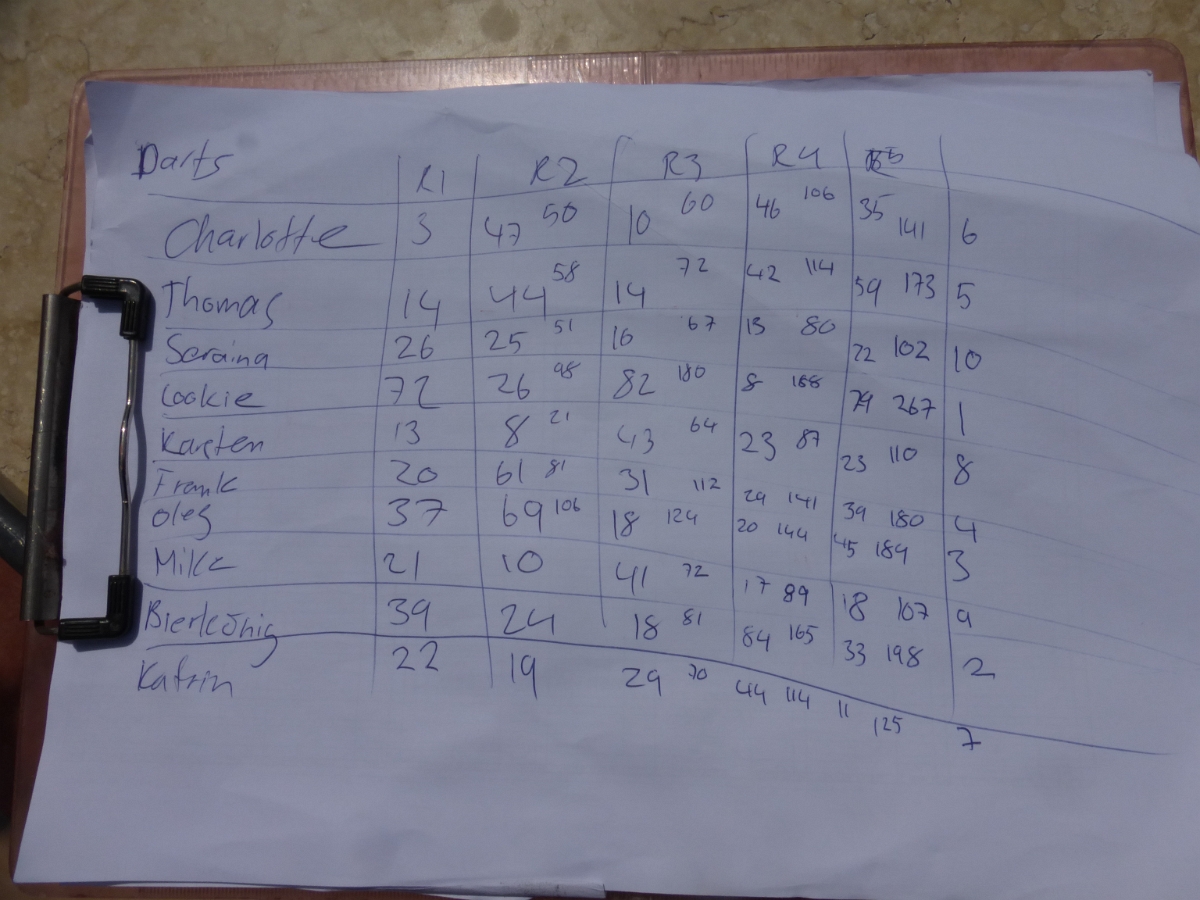 Darts R1 R2 R3 R4 R5
Charlotte 3 47 50 10 60 46 106 35 141 6
Thomas 14 44 58 14 72 42 114 59 173 5
Seraina 26 25 51 16 67 13 80 22 102 10
Cookie 72 26 98 82 180 8 188 79 267 1
Karsten 13 8 21 43 64 23 87 23 110 8
Frank 20 61 81 31 112 29 141 39 180 4
Oleg 37 69 106 18 124 20 144 45 189 3
Mike 21 10 41 72 17 89 18 107 9
Bierkönig 39 24 18 81 84 165 33 198 2
Katrin 22 19 29 70 44 114 11 125 7